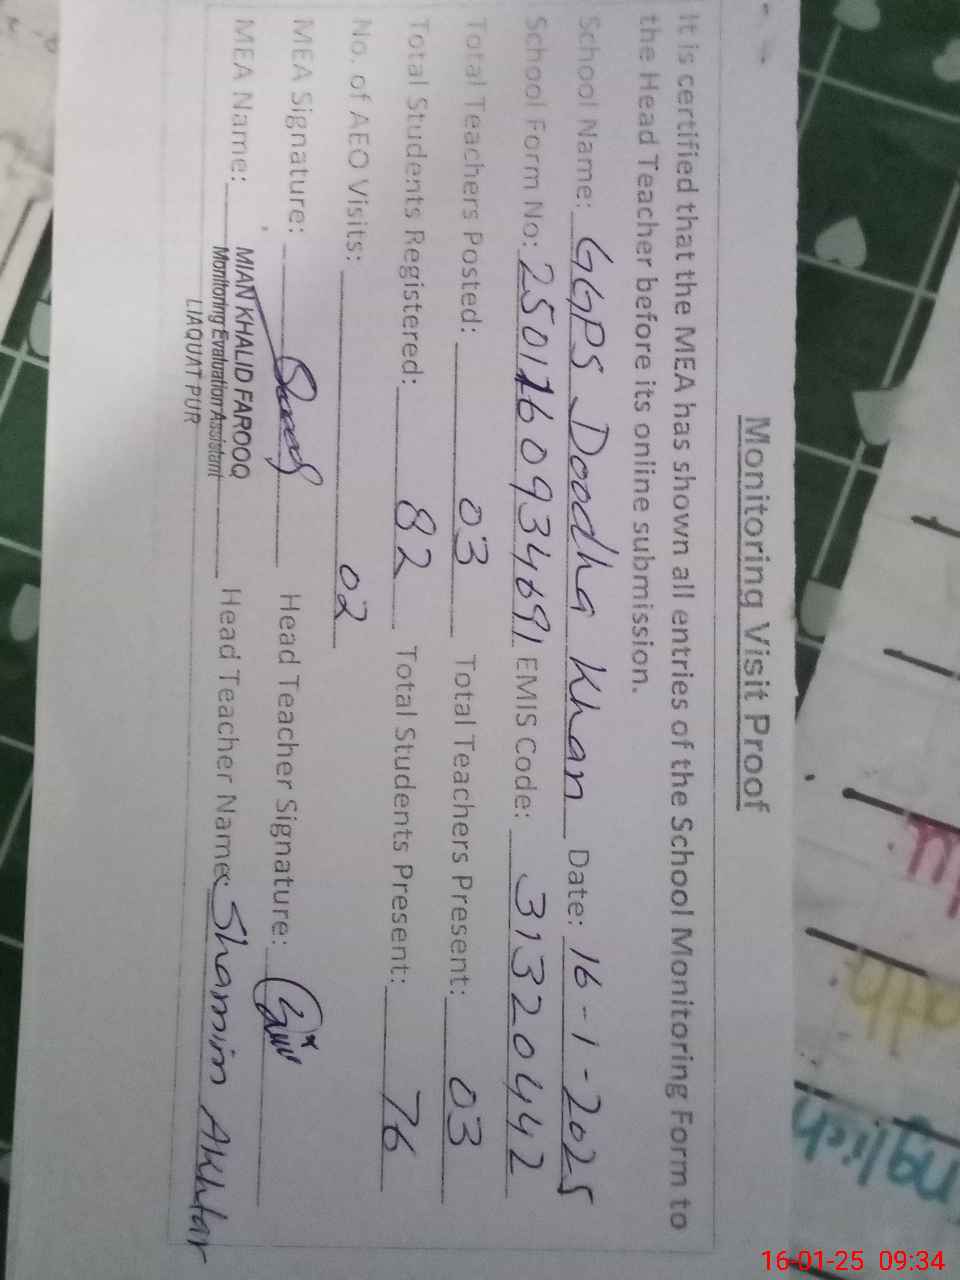 Monitoring Visit Proof
It is certified that the MEA has shown all entries of the School Monitoring Form to
the Head Teacher before its online submission.
School Name: GGPS Doodha Khan Date: 16-1-2025
School Form No: 2501160934691 EMIS Code: 31320442
Total Teachers Posted: 03 Total Teachers Present: 03
Total Students Registered: 82 Total Students Present: 76
No. of AEO Visits: 02
MEA Signature: Head Teacher Signature:
MEA Name: MIAN KHALID FAROOQ Head Teacher Name: Shamim Akhtar
Monitoring Evaluation Assistant
LIAQUAT PUR
nglish
16-01-25 09:34